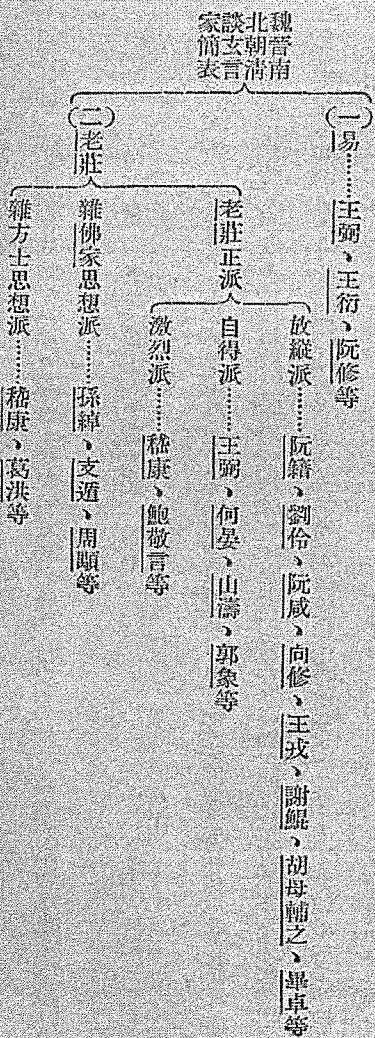 魏晉南
北朝淸
談玄言
家簡表
(一)易……王弼、王衍、阮修等
(二)老莊
老莊正派
放縱派……阮籍、劉伶、阮咸、向修、王戎、謝鯤、胡母輔之、畢卓等
自得派……王弼、何晏、山濤、郭象等
激烈派……嵇康、鮑敬言等
雜佛家思想派……孫綽、支遁、周顒等
雜方士思想派……嵇康、葛洪等